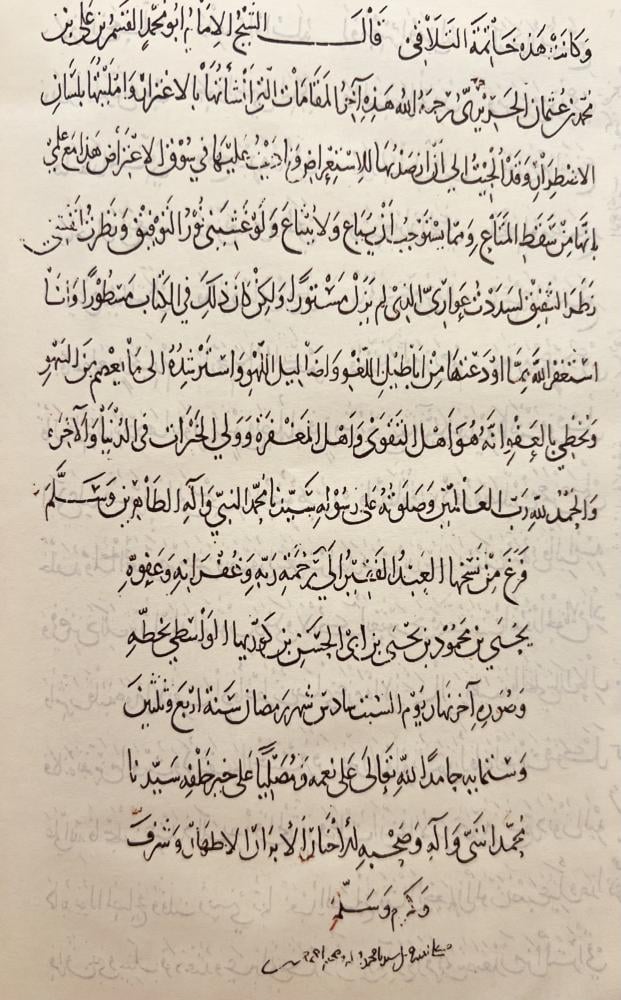 وَكَانَتْ هَذِهِ خَاتِمَةَ التَّلَاقِي قَالَ الشَّيْخُ الْإِمَامُ أَبُو مُحَمَّدٍ الْقَسِمُ بْنُ عَلِيِّ بْنِ
مُحَمَّدِ بْنِ عُثْمَانَ الْحَرِيْرِيُّ رَحِمَهُ اللهُ هَذِهِ آخِرُ الْمَقَامَاتِ الَّتِي أَنْشَأْتُهَا بِالْاغْتِرَارِ وَأَمْلَيْتُهَا بِلِسَانِ
الْاضْطِرَارِ وَقَدْ أُلْجِئْتُ إِلَى أَنْ أَرْصَدْتُهَا لِلْاسْتِعْرَاضِ وَنَادَيْتُ عَلَيْهَا فِي سُوْقِ الْاعْتِرَاضِ هَذَا مَعَ عِلْمِي
بِأَنَّهَا مِنْ سَقَطِ الْمَتَاعِ وَمِمَّا يَسْتَوْجِبُ أَنْ يُبَاعَ وَلَا يُبْتَاعَ وَلَوْ غَشِيَنِي نُوْرُ التَّوْفِيْقِ وَنَظَرْتُ لِنَفْسِي
نَظَرَ الشَّفِيْقِ لَسَتَرْتُ عَوَارِيَ الَّذِي لَمْ يَزَلْ مَسْتُوْرًا وَلَكِنْ كَانَ ذَلِكَ فِي الْكِتَابِ مَسْطُوْرًا وَأَنَا
أَسْتَغْفِرُ اللهَ مِمَّا أَوْدَعْتُهَا مِنْ أَبَاطِيْلِ اللَّغْوِ وَأَضَالِيْلِ اللَّهْوِ وَأَسْتَرْشِدُهُ إِلَى مَا يَعْصِمُ مِنَ السَّهْوِ
وَيُحْظِي بِالْعَفْوِ إِنَّهُ هُوَ أَهْلُ التَّقْوَى وَأَهْلُ الْمَغْفِرَةِ وَوَلِيُّ الْخَيْرَاتِ فِي الدُّنْيَا وَالْآخِرَةِ
وَالْحَمْدُ لِلَّهِ رَبِّ الْعَالَمِيْنَ وَصَلَوتُهُ عَلَى رَسُوْلِهِ سَيِّدِنَا مُحَمَّدٍ النَّبِيِّ وَآلِهِ الطَّاهِرِيْنَ وَسَلَّمَ
فَرَغَ مِنْ نَسْخِهَا الْعَبْدُ الْفَقِيْرُ إِلَى رَحْمَةِ رَبِّهِ وَغُفْرَانِهِ وَعَفْوِهِ
يَحْيَى بْنُ مَحْمُوْدِ بْنِ يَحْيَى بْنِ أَبِي الْحَسَنِ بْنِ كَوِّرِيهَا الْوَاسِطِيُّ بِخَطِّهِ
وَصُوَرِهِ آخِرَ نَهَارِ يَوْمِ السَّبْتِ سَادِسَ شَهْرِ رَمَضَانَ سَنَةَ أَرْبَعٍ وَثَلَثِيْنَ
وَسِتِّمَايِةٍ حَامِدًا لِلَّهِ تَعَالَى عَلَى نِعَمِهِ وَمُصَلِّيًا عَلَى خَيْرِ خَلْقِهِ سَيِّدِنَا
مُحَمَّدٍ النَّبِيِّ وَآلِهِ وَصَحْبِهِ الْأَخْيَارِ الْأَبْرَارِ الْأَطْهَارِ وَشَرَّفَ
وَكَرَّمَ وَسَلَّمَ